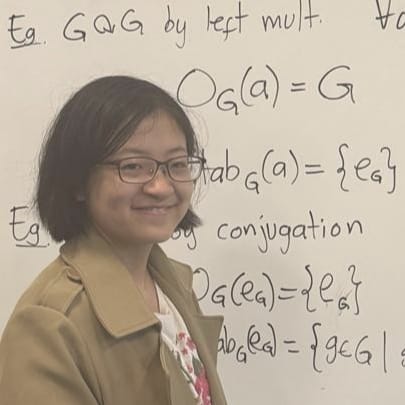 Eg. G ↷ G by left mult. ∀a
O_G(a) = G
tab_G(a) = {e_G}
Eg by conjugation
O_G(e_G) = {e_G}
ab_G(e_G) = {g∈G |